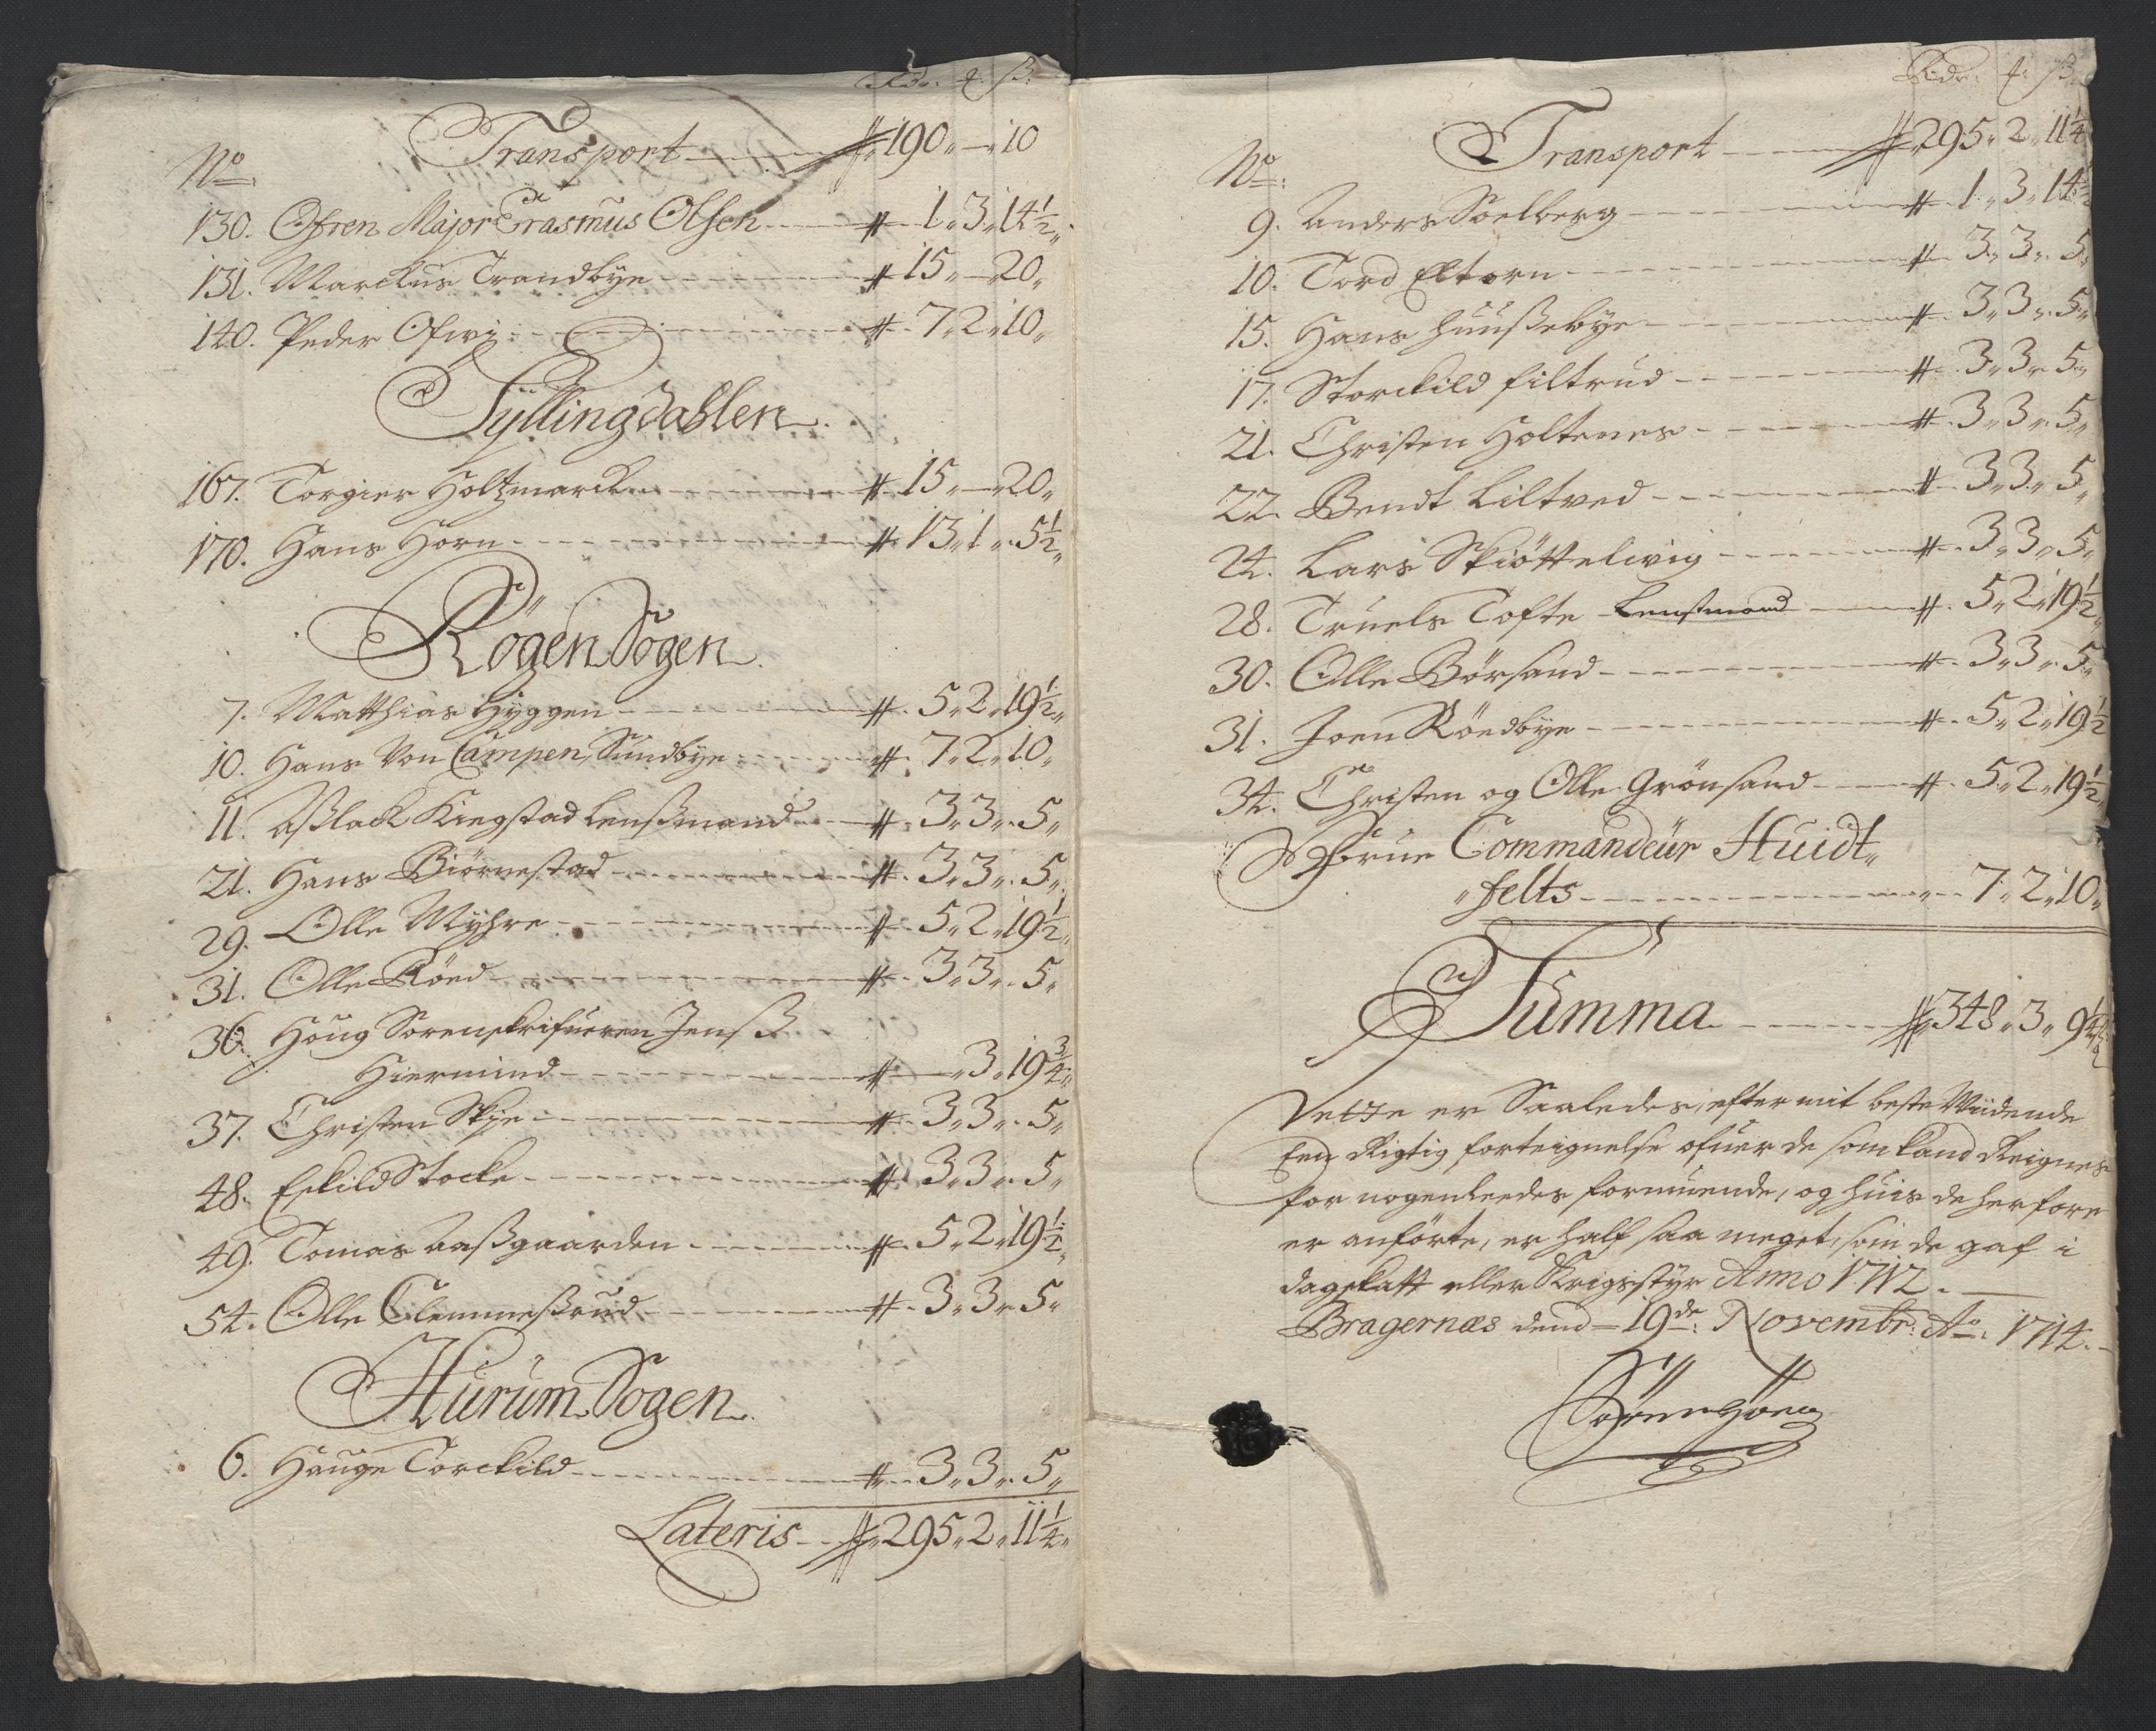 Rdr: # ß:
Transport # 190 „ — „ 10
No
130. Ofren Major Erasmus Olsen # 1 „ 3 „ 14½ „
131. Marckus Trandbye # 15 „ — 20 „
140. Peder Ofwi # 7 „ 2 „ 10 „
Syllingdahlen.
167. Torgier Holtzmarck # 15 „ — „ 20 „
170. Hans Horn # 13 „ 1 „ 5½ „
Rögen Sogen.
7. Matthias Hyggen # 5 „ 2 „ 19½ „
10. Hans Von Campen, Sundbye # 7 „ 2 „ 10 „
11. Aßlack Kiegstad Lenßmand # 3 „ 3 „ 5 „
21. Hans Biörnestad # 3 „ 3 „ 5 „
29. Olle Myhre # 5 „ 2 „ 19½ „
31. Olle Röed # 3 „ 3 „ 5 „
36. Houg Sorenskrifueren Jenß
Hiermind # — „ 3 „ 19¾ „
37. Christen Skye # 3 „ 3 „ 5 „
48. Eskild Stocke # 3 „ 3 „ 5 „
49. Tomas Aaßgaarden # 5 „ 2 „ 19½ „
54. Olle Clemmeßrud # 3 „ 3 „ 5 „
Hurum Sogen.
6. Hauge Torckild # 3 „ 3 „ 5 „
Lateris # 295 „ 2 „ 11¼ „
Rdr: # ß:
Transport # 295 „ 2 „ 11¼
No:
9. Anders Soelberg # 1 „ 3 „ 14½
10. Tord Eltorn # 3 „ 3 „ 5 „
15. Hans Huußebye # 3 „ 3 „ 5 „
17. Storckild filtrud # 3 „ 3 „ 5 „
21. Christen Holtenes # 3 „ 3 „ 5 „
22. Bendt Liltved # 3 „ 3 „ 5 „
24. Lars Skiöttelwig # 3 „ 3 „ 5 „
28. Truels Tofte Lenstmand # 5 „ 2 „ 19½ „
30. Olle Börsand # 3 „ 3 „ 5 „
31. Joen Röedbye # 5 „ 2 „ 19½
34. Christen og Olle Grönsand # 5 „ 2 „ 19½
Frue Commandeur Huidt„
„felts 7 „ 2 „ 10 „
Summa # 348 „ 3 „ 9¼
Dette er Saaledes, efter mit beste Widende
Een Rigtig forteignelse ofuer de som kand Reignes
for nogenleedes formuende, og huis de herfore
er anförte, er half saa meget, som de gaf i
dagskatt eller Krigsstyr Anno 1712.
Bragernæs dend 19de: Novembr: Ao: 1714.